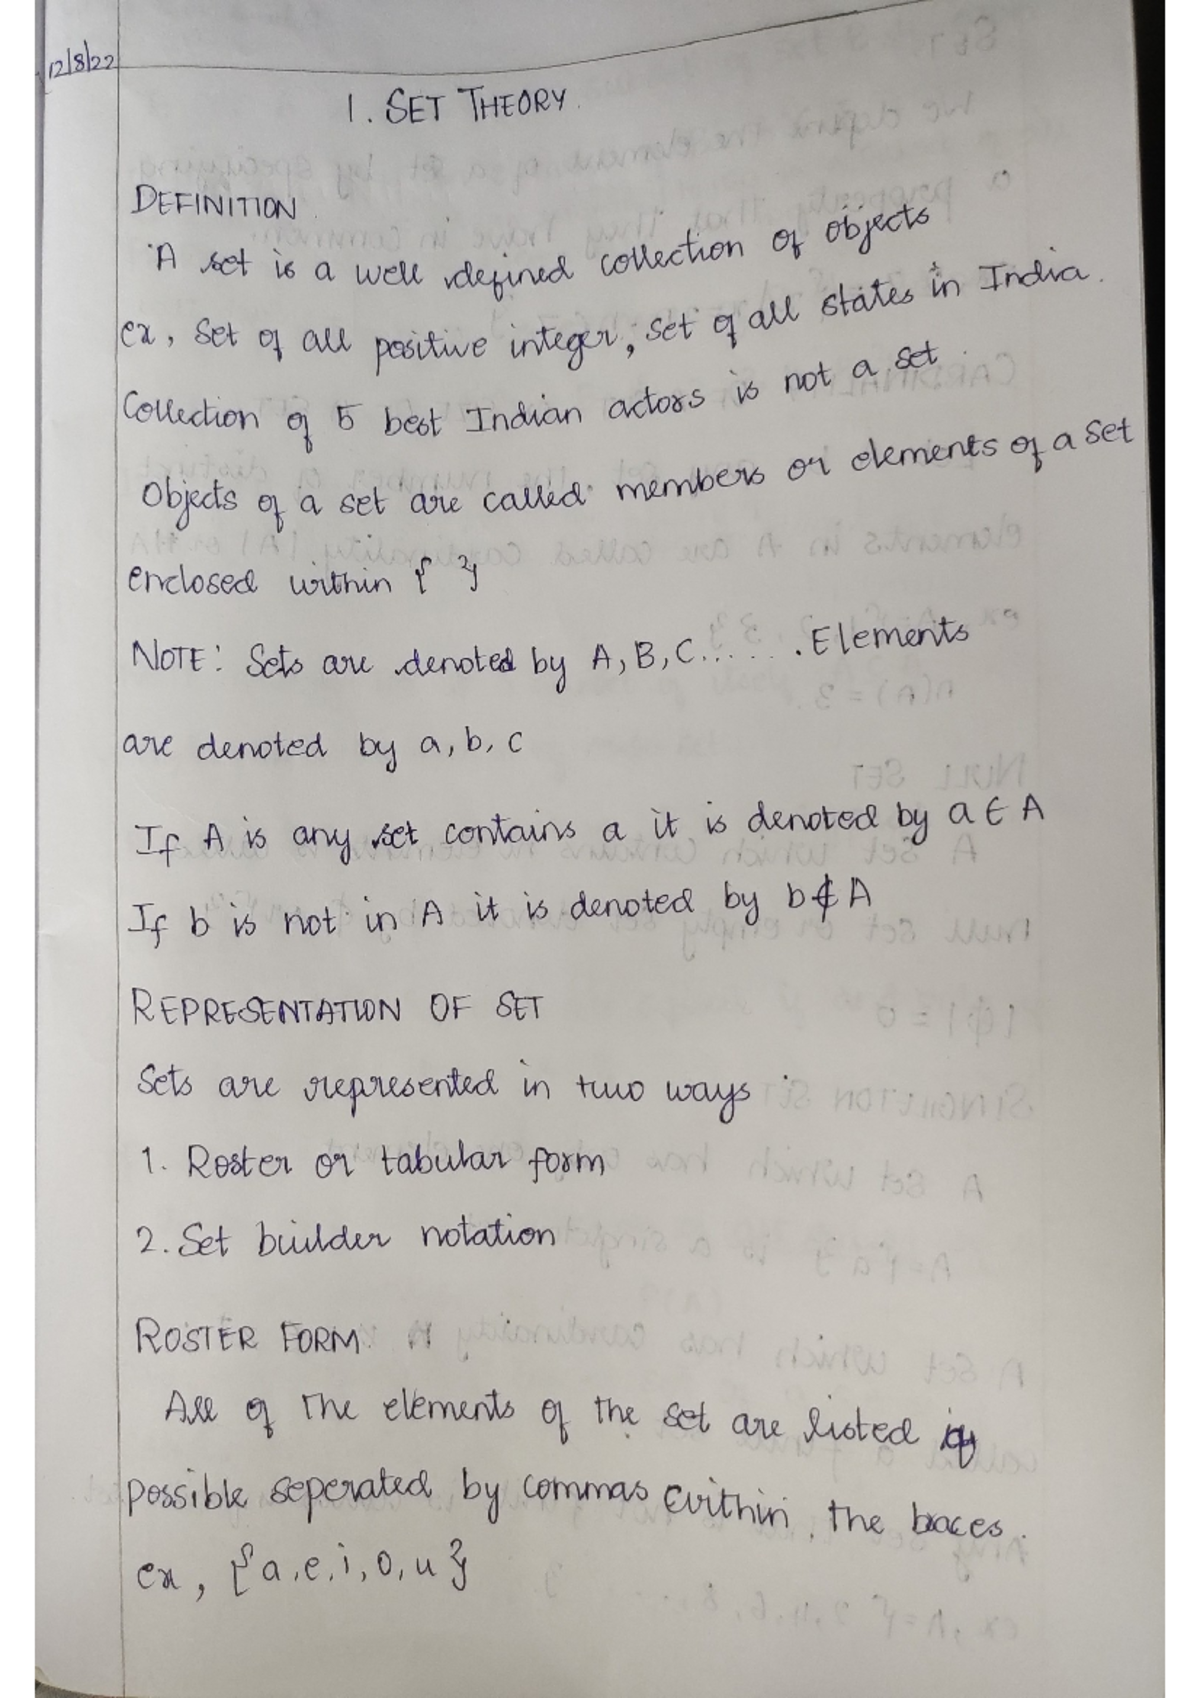 12/8/22
1. SET THEORY.
DEFINITION
A set is a well defined collection of objects
ex, Set of all positive integer, set of all states in India.
Collection of 5 best Indian actors is not a set.
Objects of a set are called members or elements of a set
enclosed within { }
NOTE: Sets are denoted by A, B, C...... Elements
are denoted by a, b, c
If A is any set contains a it is denoted by a ∈ A
If b is not in A it is denoted by b ∉ A
REPRESENTATION OF SET
Sets are represented in two ways
1. Roster or tabular form
2. Set builder notation
ROSTER FORM
All of the elements of the set are listed if
possible seperated by commas within the braces.
ex, {a, e, i, o, u}